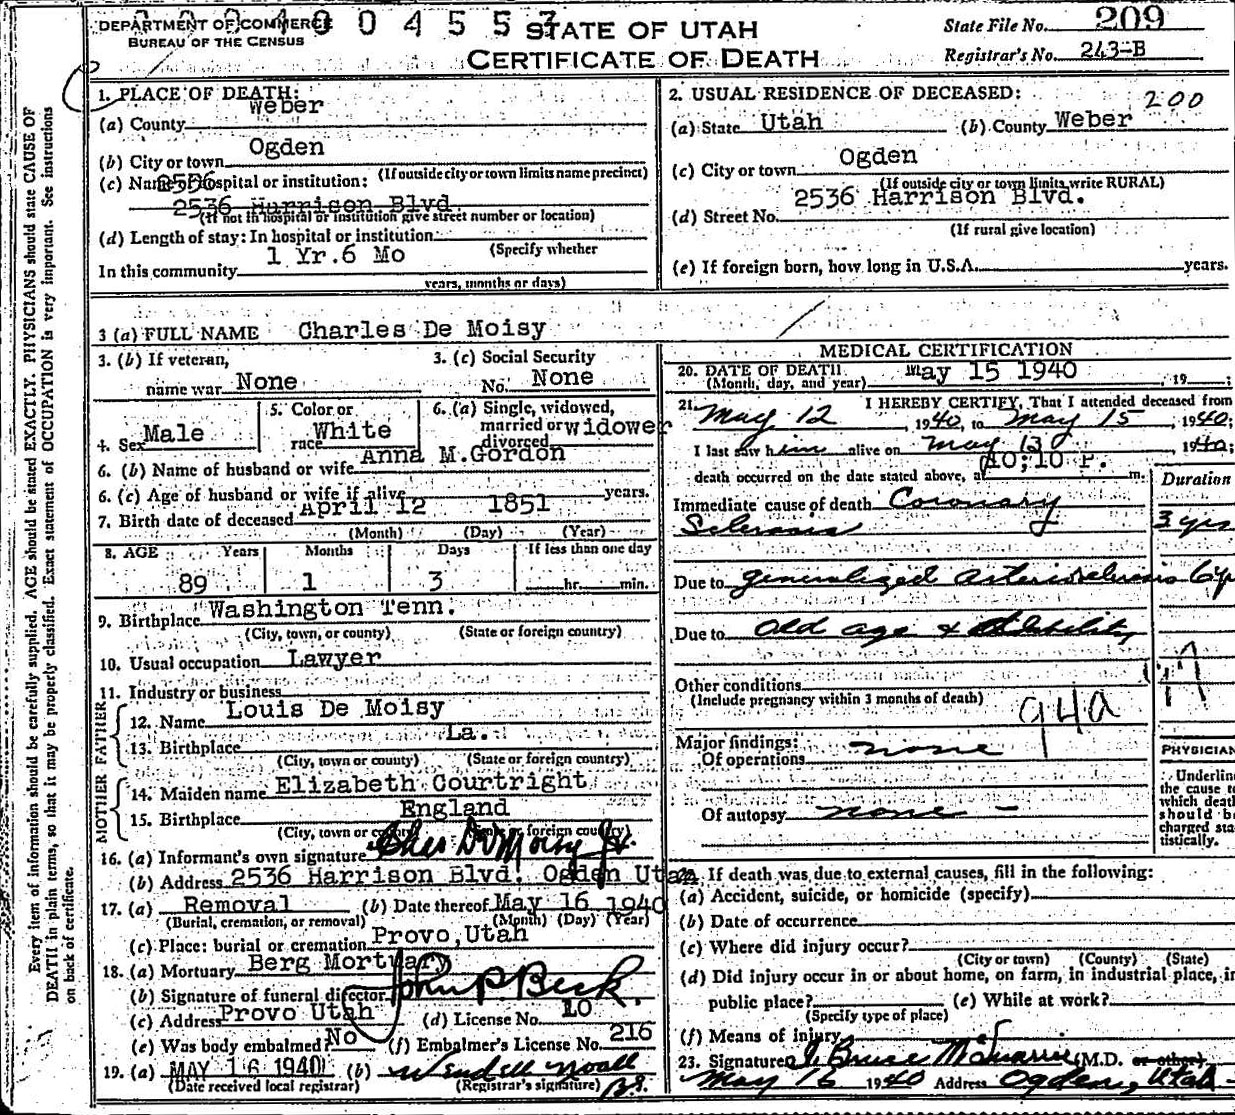 DEPARTMENT OF COMMERCE
BUREAU OF THE CENSUS
0 0 4 5 5 7
STATE OF UTAH
CERTIFICATE OF DEATH
State File No. 209
Registrar's No. 243-B
Every item of information should be carefully supplied. AGE should be stated EXACTLY. PHYSICIANS should state CAUSE OF
DEATH in plain terms, so that it may be properly classified. Exact statement of OCCUPATION is very important. See instructions
on back of certificate.
1. PLACE OF DEATH:
(a) County Weber
(b) City or town Ogden
(If outside city or town limits name precinct)
(c) Name of hospital or institution:
2536
2536 Harrison Blvd.
(If not in hospital or institution give street number or location)
(d) Length of stay: In hospital or institution
(Specify whether
In this community 1 Yr.6 Mo
years, months or days)
2. USUAL RESIDENCE OF DECEASED:
200
(a) State Utah (b) County Weber
(c) City or town Ogden
(If outside city or town limits write RURAL)
(d) Street No. 2536 Harrison Blvd.
(If rural give location)
(e) If foreign born, how long in U.S.A. years.
3 (a) FULL NAME Charles De Moisy
3. (b) If veteran,
name war None
3. (c) Social Security
No. None
4. Sex Male
5. Color or
race White
6. (a) Single, widowed,
married or widower
divorced
6. (b) Name of husband or wife Anna M.Gordon
6. (c) Age of husband or wife if alive years.
7. Birth date of deceased April 12 1851
(Month) (Day) (Year)
8. AGE Years Months Days If less than one day
89 1 3 hr. min.
9. Birthplace Washington Tenn.
(City, town, or county) (State or foreign country)
10. Usual occupation Lawyer
11. Industry or business
FATHER
12. Name Louis De Moisy
13. Birthplace La.
(City, town or county) (State or foreign country)
MOTHER
14. Maiden name Elizabeth Courtright
15. Birthplace England
(City, town or county) (State or foreign country)
16. (a) Informant's own signature Chas De Moisy Jr.
(b) Address 2536 Harrison Blvd. Ogden Utah
17. (a) Removal (b) Date thereof May 16 1940
(Burial, cremation, or removal) (Month) (Day) (Year)
(c) Place: burial or cremation Provo,Utah
18. (a) Mortuary Berg Mortuary
(b) Signature of funeral director John P. Beck.
(c) Address Provo Utah (d) License No. 10
(e) Was body embalmed? No (f) Embalmer's License No. 216
19. (a) MAY 16 1940 (b) Wendell Noall
(Date received local registrar) (Registrar's signature)
MEDICAL CERTIFICATION
20. DATE OF DEATH May 15 1940
(Month, day, and year) , 19 ;
21. I HEREBY CERTIFY, That I attended deceased from
May 12, 1940, to May 15, 1940;
I last saw him alive on May 13 1940;
death occurred on the date stated above, at 10:10 P. m.
Duration
Immediate cause of death Coronary
Sclerosis 3 yrs
Due to generalized Arteriosclerosis 6 y
Due to Old age & debility
Other conditions
(Include pregnancy within 3 months of death)
94a
Major findings:
Of operations none
Of autopsy none -
PHYSICIAN
Underline
the cause to
which death
should be
charged sta-
tistically.
22. If death was due to external causes, fill in the following:
(a) Accident, suicide, or homicide (specify)
(b) Date of occurrence
(c) Where did injury occur?
(City or town) (County) (State)
(d) Did injury occur in or about home, on farm, in industrial place, in
public place? (e) While at work?
(Specify type of place)
(f) Means of injury
23. Signature Bruce McQuarrie (M.D. or other)
May 16 1940 Address Ogden, Utah